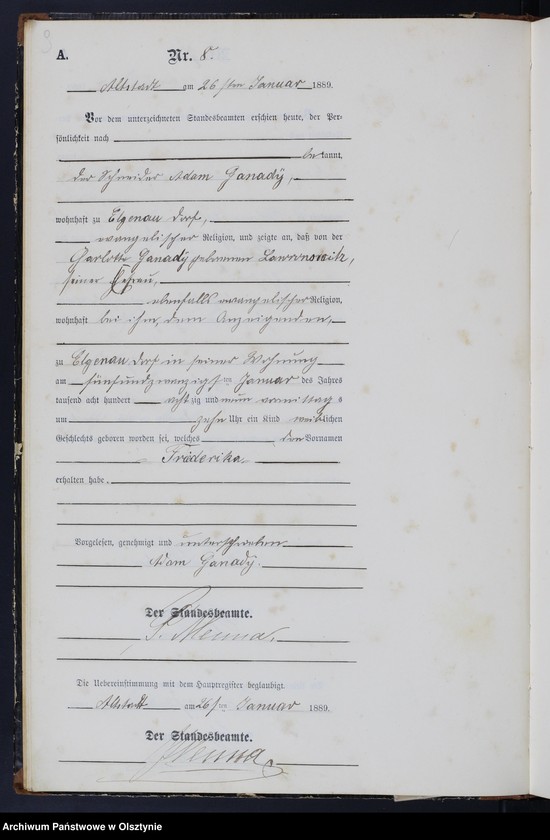 9
A. Nr. 8.
Altstadt am 26sten Januar 1889.
Vor dem unterzeichneten Standesbeamten erschien heute, der Per-
sönlichkeit nach
bekannt,
der Schneider Adam Ganady,
wohnhaft zu Elgenau Dorf,
evangelischer Religion, und zeigte an, daß von der
Charlotte Ganady geborenen
seiner Ehefrau,
ebenfalls evangelischer Religion,
wohnhaft bei ihm, dem Anzeigenden,
zu Elgenau Dorf in seiner Wohnung
am fünfundzwanzigsten Januar des Jahres
tausend acht hundert achtzig und neun vormittags
um zehn Uhr ein Kind weiblichen
Geschlechts geboren worden sei, welches den Vornamen
Friederika
erhalten habe.
Vorgelesen, genehmigt und unterschrieben
Adam Ganady.
Der Standesbeamte.
Menna.
Die Uebereinstimmung mit dem Hauptregister beglaubigt.
Altstadt am 26sten Januar 1889.
Der Standesbeamte.
Menna
Archiwum Państwowe w Olsztynie